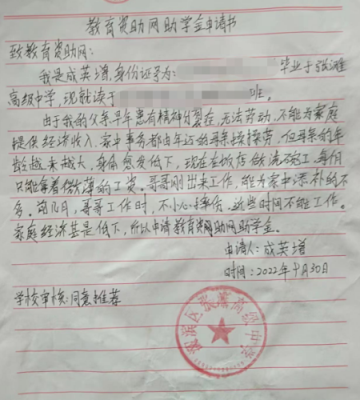 教育资助网助学金申请书
致教育资助网:
我是成英增,身份证号为: 毕业于张滩
高级中学,现就读于 班。
由于我的父亲早年患有精神分裂症,无法劳动,不能为家庭
提供经济收入,家中事务都由年迈的母亲操劳,但母亲的年
龄越来越大,身体愈发低下,现在在饭店做洗碗工,每月
只能拿着微薄的工资。哥哥刚出来工作,能为家中添补的不
多。前几日,哥哥工作时,不小心摔伤,这些时间不能工作。
家庭经济甚是低下,所以申请教育资助网助学金。
申请人:成英增
时间:2022年9月30日
学校审核:同意推荐
滨区张滩高级中学